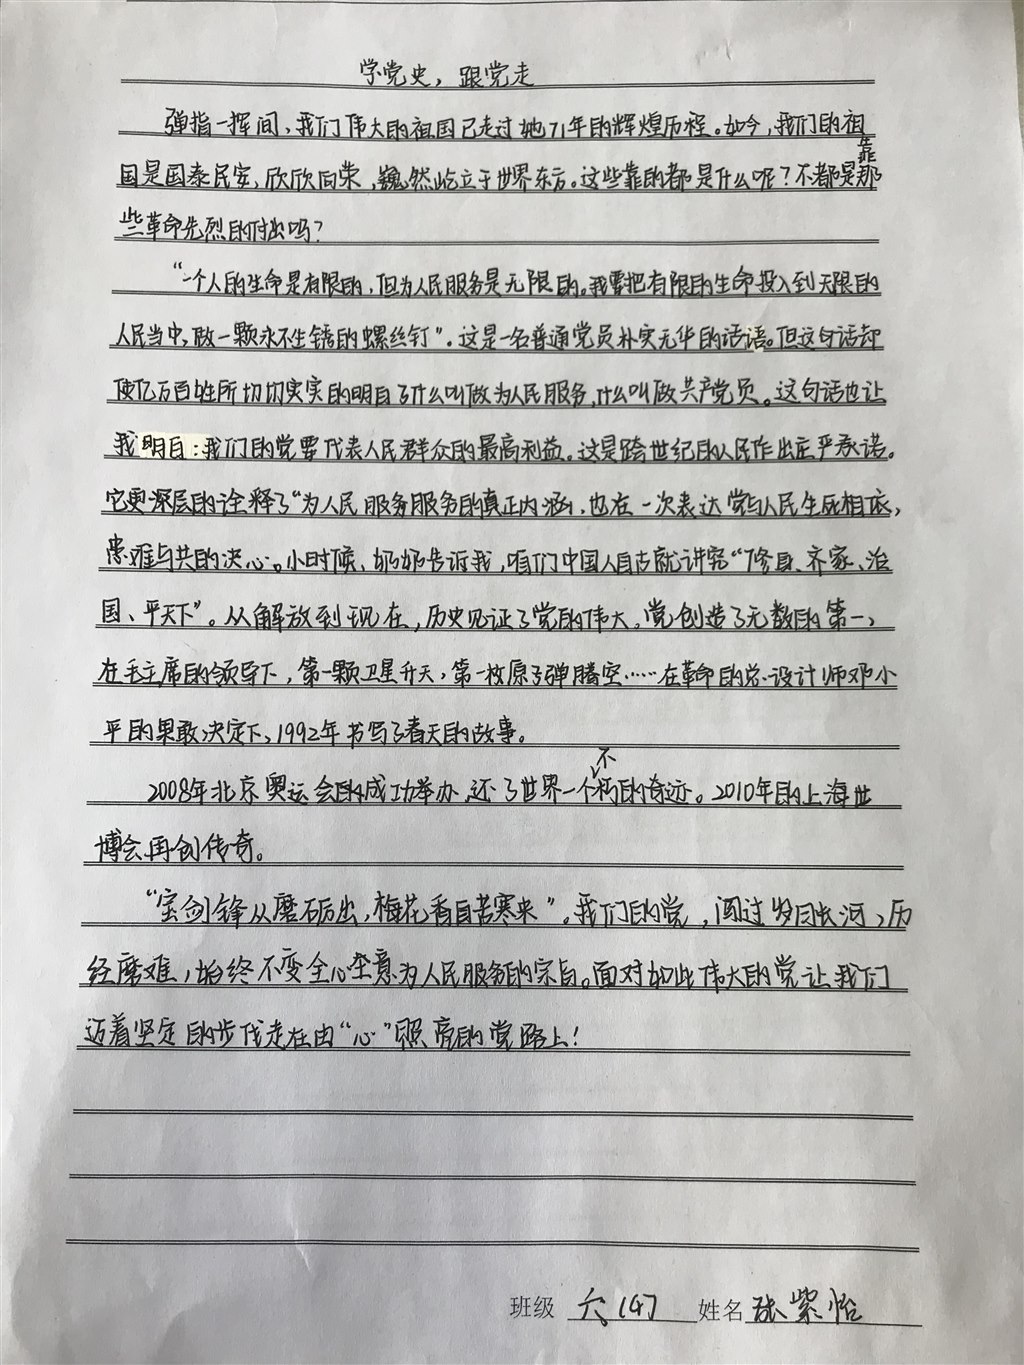 学党史，跟党走
弹指一挥间，我们伟大的祖国已走过她71年的辉煌历程。如今，我们的祖
国是国泰民安，欣欣向荣，巍然屹立于世界东方。这些靠的都是什么呢？不都是靠那
些革命先烈的付出吗？
“一个人的生命是有限的，但为人民服务是无限的。我要把有限的生命投入到无限的
人民当中，做一颗永不生锈的螺丝钉”。这是一名普通党员朴实无华的话语。但这句话却
使亿万百姓所切切实实的明白了什么叫做为人民服务，什么叫做共产党员。这句话也让
我明白：我们的党要代表人民群众的最高利益。这是跨世纪的人民作出庄严承诺。
它更深层的诠释了“为人民服务服务的真正内涵，也在一次表达党与人民生死相依，
患难与共的决心。小时候，奶奶告诉我，咱们中国人自古就讲究“修身、齐家、治
国、平天下”。从解放到现在，历史见证了党的伟大，党创造了无数的第一，
在毛主席的领导下，第一颗卫星升天，第一枚原子弹腾空……在革命的总设计师邓小
平的果敢决定下，1992年书写了春天的故事。
2008年北京奥运会的成功举办，还了世界一个不朽的奇迹。2010年的上海世
博会再创传奇。
“宝剑锋从磨砺出，梅花香自苦寒来”。我们的党，闯过岁月长河，历
经磨难，始终不变全心全意为人民服务的宗旨。面对如此伟大的党让我们
迈着坚定的步伐走在由“心”照亮的党路上！
班级 六（4） 姓名 张紫怡